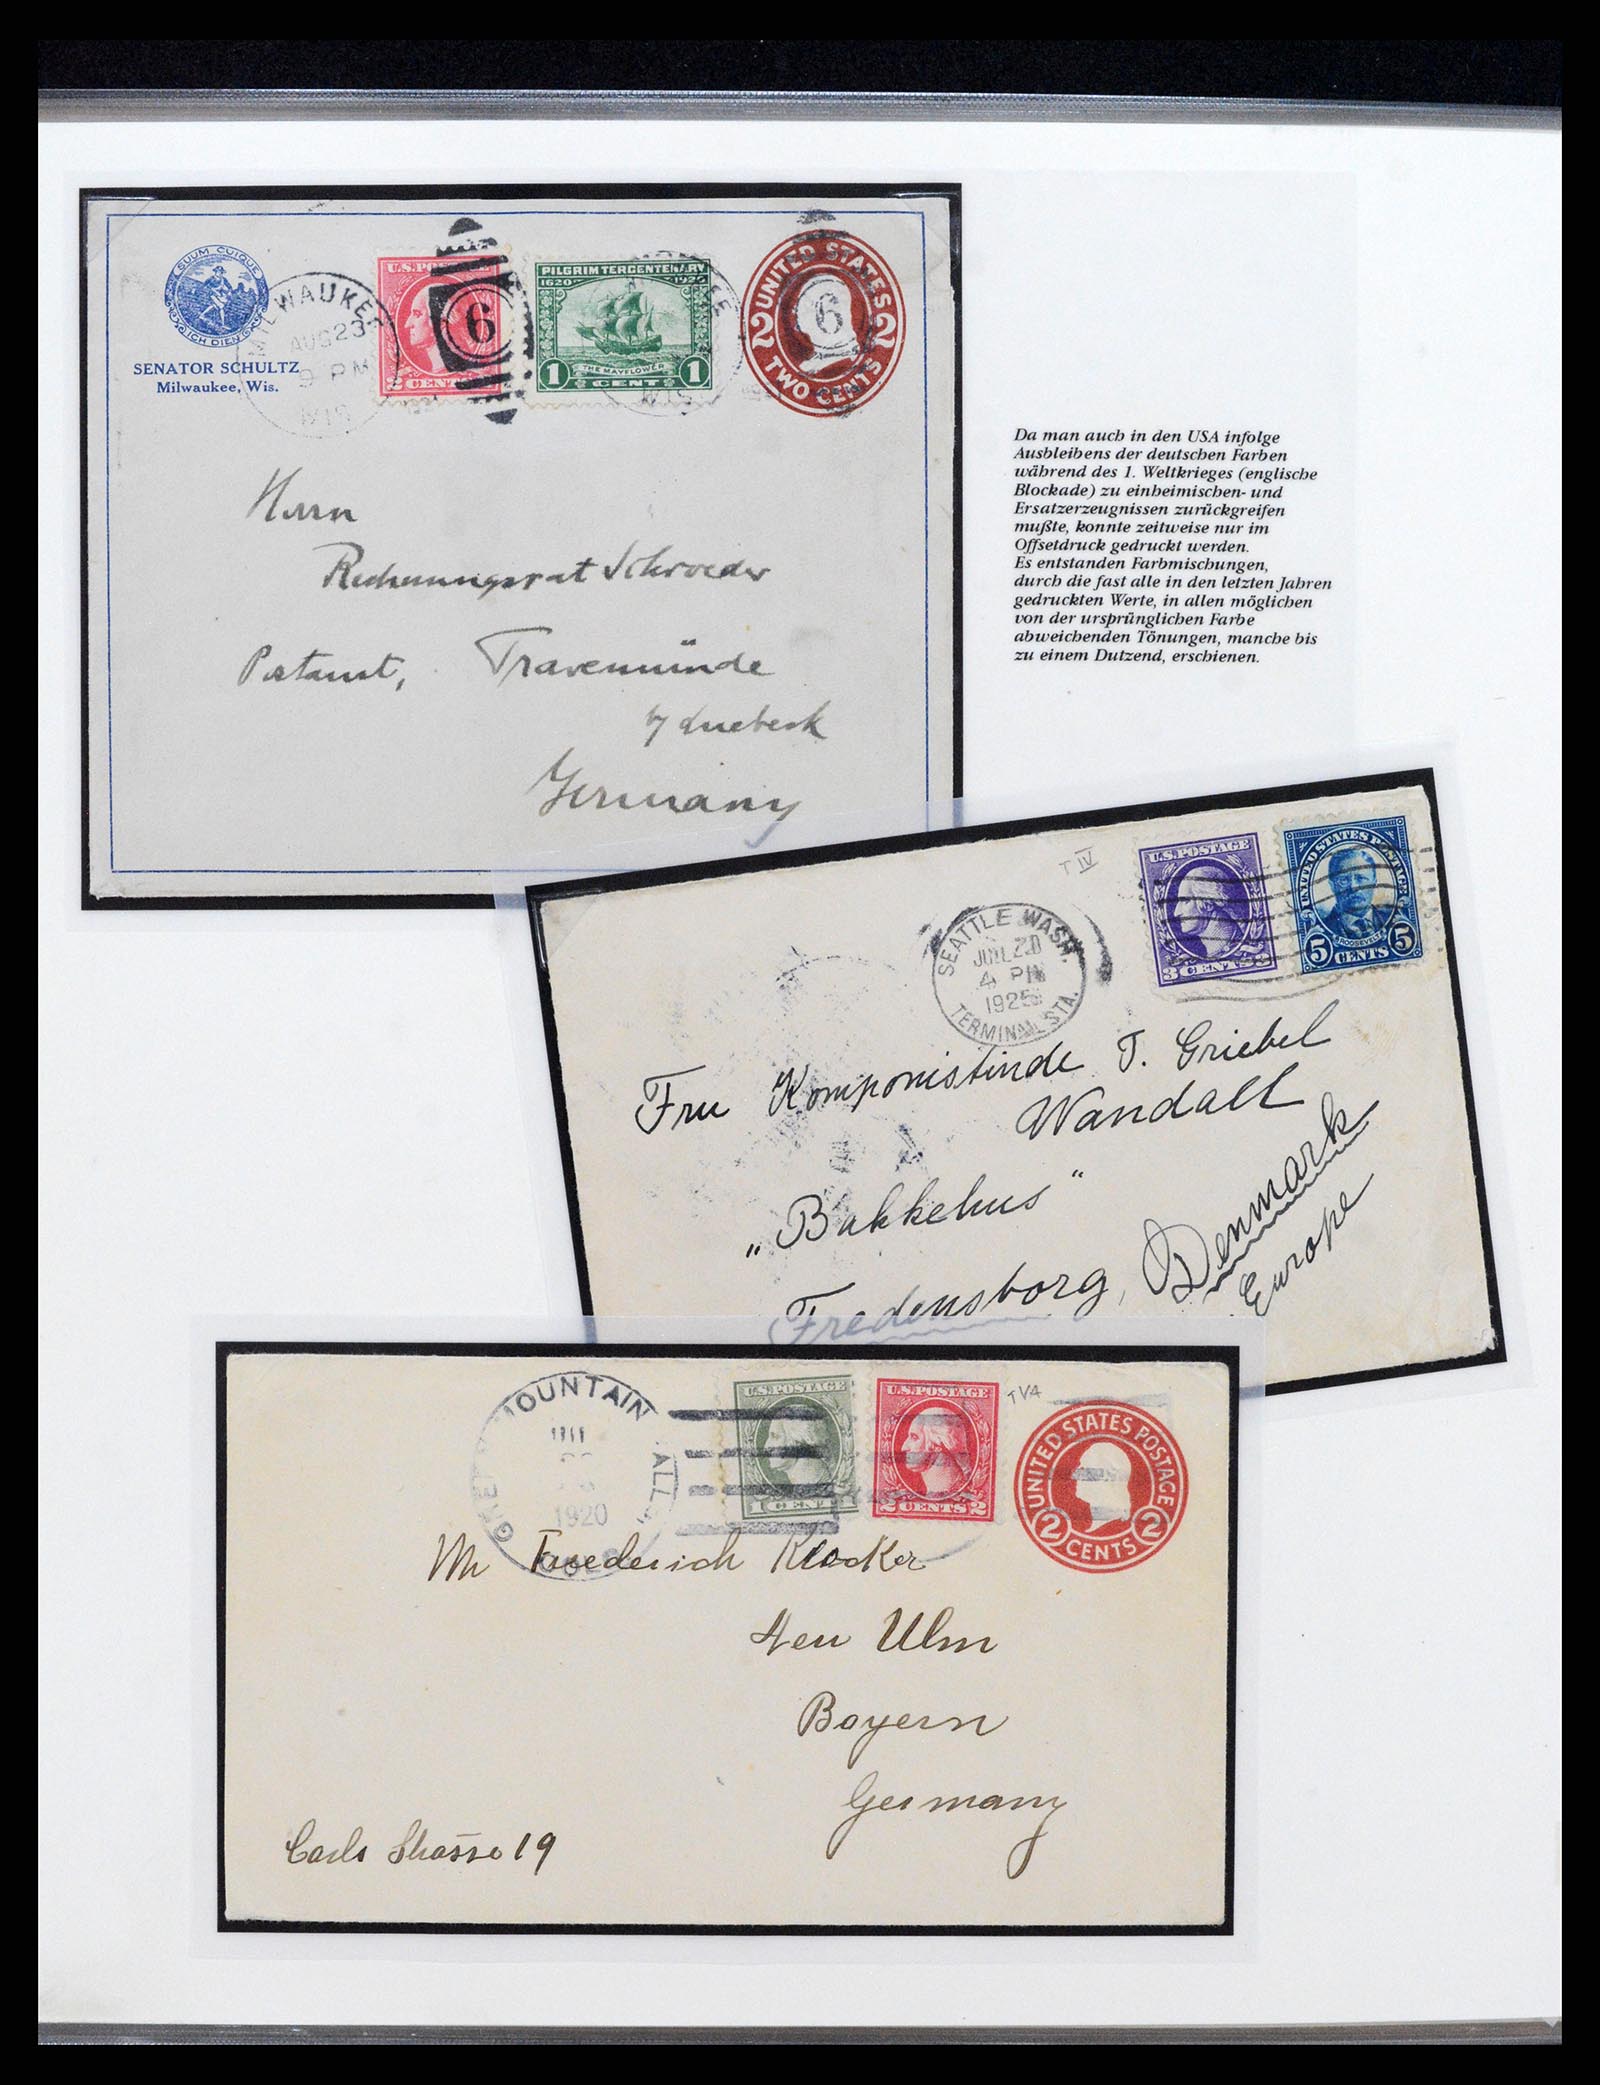 SUUM CUIQUE
ICH DIEN
SENATOR SCHULTZ
Milwaukee, Wis.
MILWAUKEE
AUG 23
9 PM
U.S. POSTAGE
2 CENTS
6
PILGRIM TERCENTENARY
1620 1920
THE MAYFLOWER
1 CENT 1
WIS.
UNITED STATES
6
2 2
TWO CENTS
Herrn
Rechnungsrat Schroeder
Postamt, Travemünde
by Luebeck
Germany
Da man auch in den USA infolge
Ausbleibens der deutschen Farben
während des 1. Weltkrieges (englische
Blockade) zu einheimischen- und
Ersatzerzeugnissen zurückgreifen
mußte, konnte zeitweise nur im
Offsetdruck gedruckt werden.
Es entstanden Farbmischungen,
durch die fast alle in den letzten Jahren
gedruckten Werte, in allen möglichen
von der ursprünglichen Farbe
abweichenden Tönungen, manche bis
zu einem Dutzend, erschienen.
T IV
SEATTLE WASH.
JUL 20
4 PM
1925
TERMINAL STA.
U.S. POSTAGE
3 CENTS 3
UNITED STATES POSTAGE
ROOSEVELT
5 CENTS 5
Fru Komponistinde T. Griebel
Wandall
„Bakkehus"
Fredensborg, Denmark
Europe
MOUNTAIN
1920
COLO
U.S. POSTAGE
1 CENT 1
U.S. POSTAGE
2 CENTS 2
TVA
UNITED STATES POSTAGE
2 2
CENTS
Mr Friederich Klocker
Neu Ulm
Bayern
Germany
Carls Strasse 19